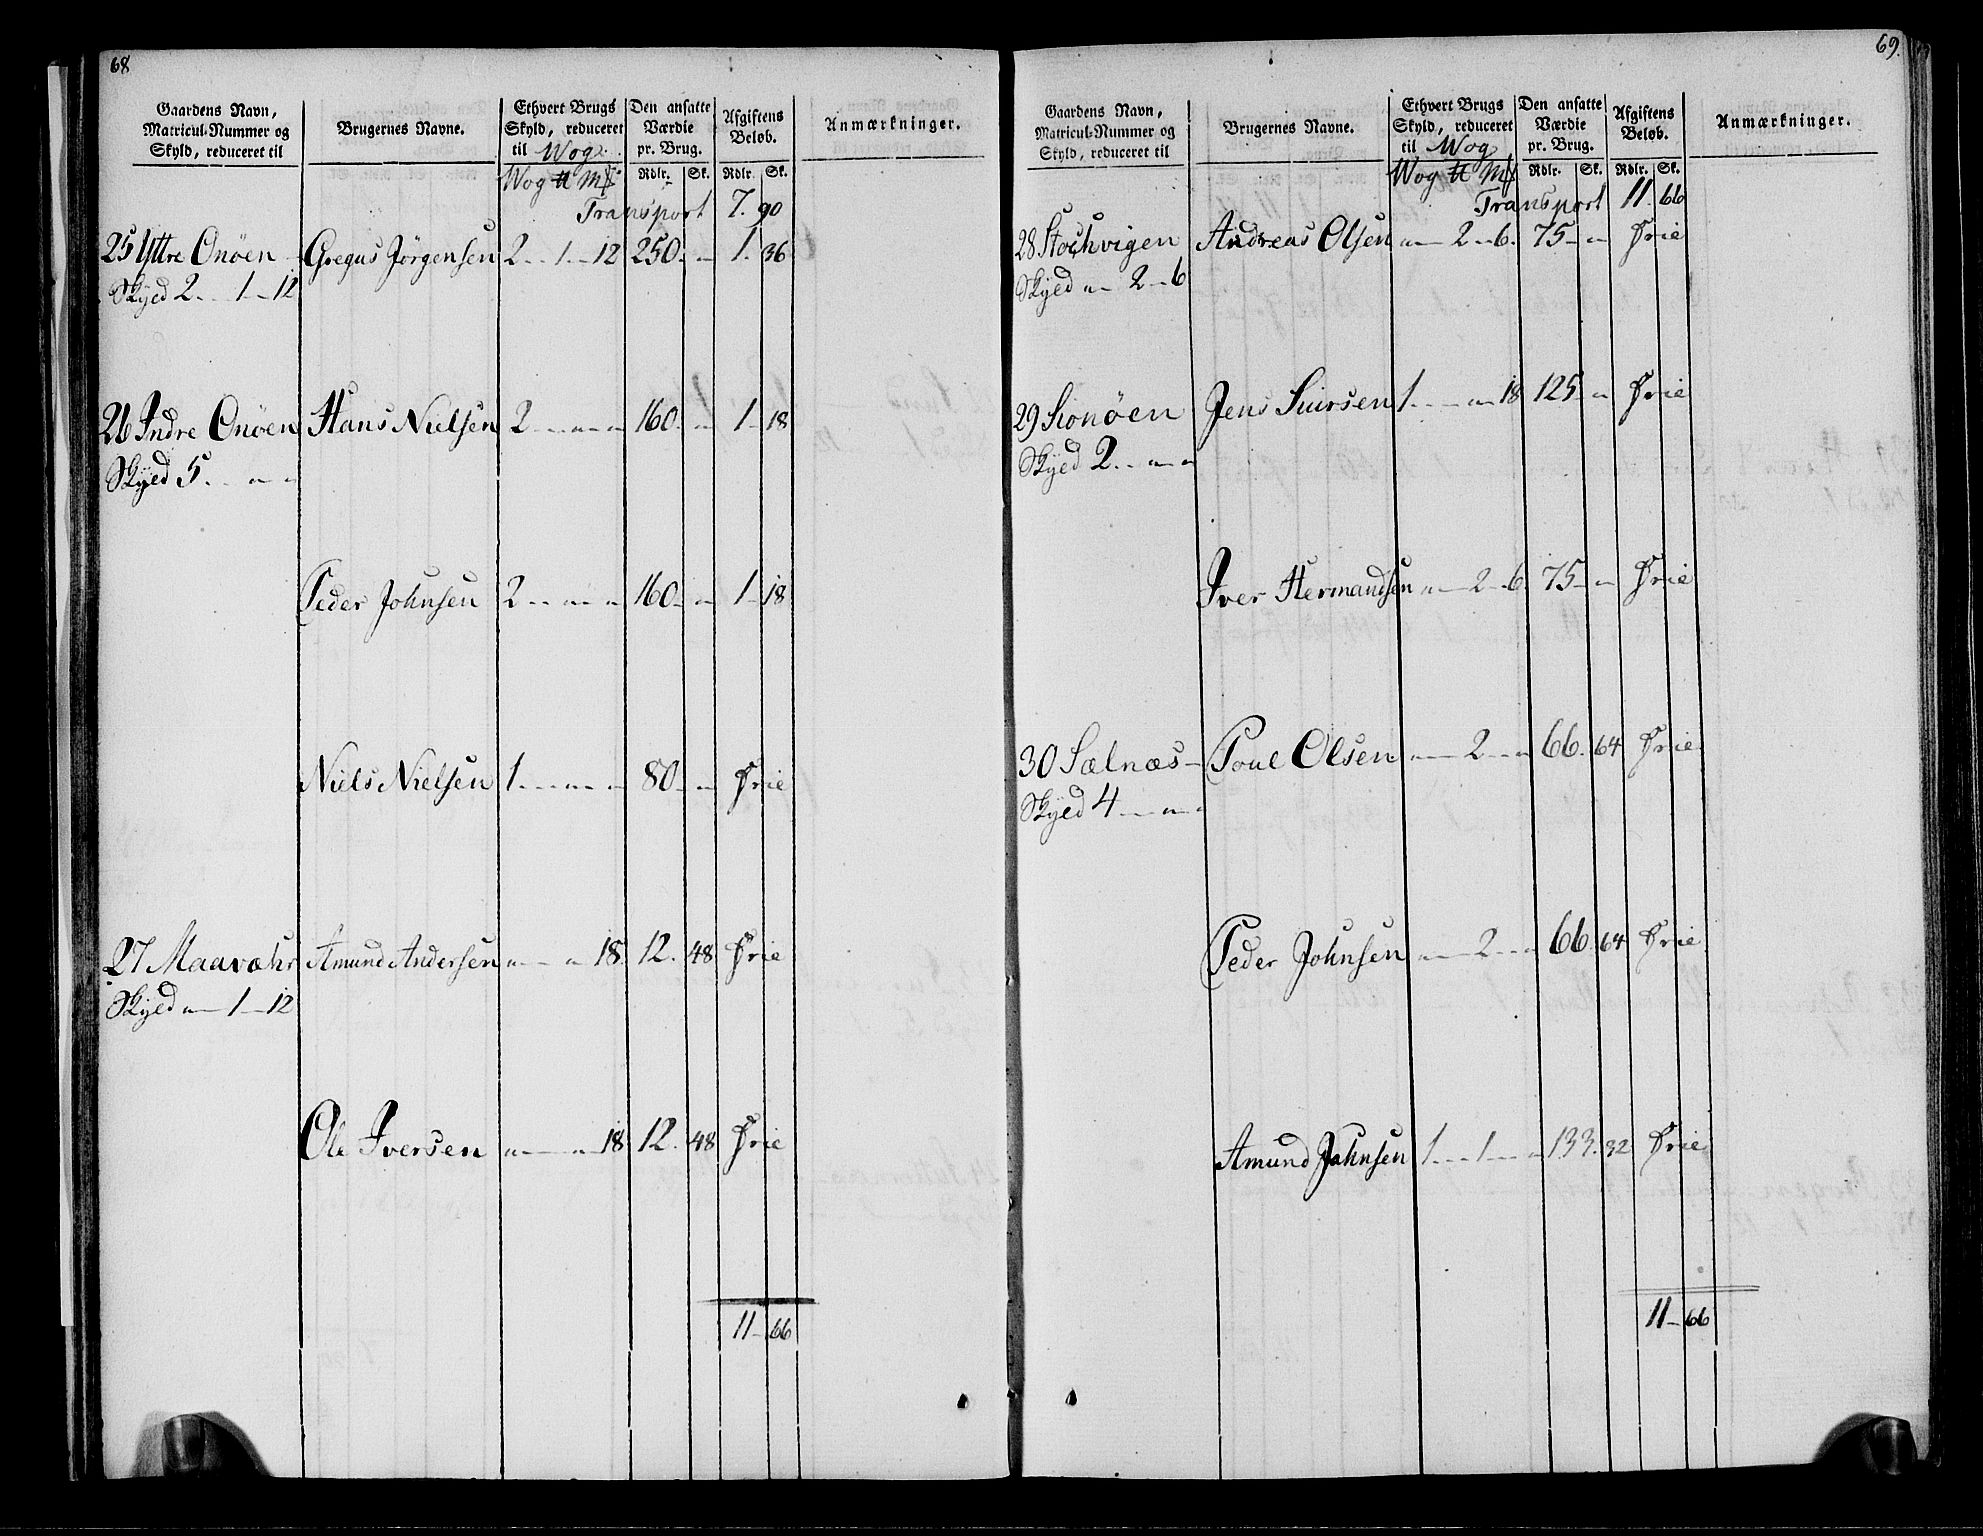 68
Gaardens Navn, Matricul-Nummer og Skyld, reduceret til
Brugernes Navne.
Ethvert Brugs Skyld, reduceret til Wog
Den ansatte Værdie pr. Brug.
Afgiftens Beløb.
Anmærkninger.
Wog ℔ Mk Rdlr. Sk. Rdlr. Sk.
Transport 7. 90
25 Yttre Onöen Gregus Jörgensen 2 - 1 - 12 250 - " 1. 36
Skyed 2 - 1 - 12
26 Indre Onöen Hans Nielsen 2 - " - " 160 - " 1 - 18
Skyed 5 - " - "
Peder Johnsen 2 - " - " 160 - " 1 - 18
Niels Nielsen 1 - " - " 80 - " Frie
27 Maavæhr Amund Andersen " - " 18. 12. 48 Frie
Skyed " - 1 - 12
Ole Iversen " - " 18 12. 48 Frie
11 - 66
69.
Gaardens Navn, Matricul-Nummer og Skyld, reduceret til
Brugernes Navne.
Ethvert Brugs Skyld, reduceret til Wog
Den ansatte Værdie pr. Brug.
Afgiftens Beløb.
Anmærkninger.
Wog ℔ Mk Rdlr. Sk. Rdlr. Sk.
Transport 11. 66
28 Stochvigen Andreas Olsen " - 2 - 6. 75 - " Frie
Skyed " - 2 - 6
29 Sionöen Jens Siursen 1 - " - 18 125 - " Frie
Skyed 2 - " - "
Iver Hermandsen " - 2 - 6. 75 - " Frie
30 Sælnæs - Poul Olsen " - 2 - " 66. 64 Frie
Skyed 4 - " - "
Peder Johnsen " - 2 - " 66. 64 Frie
Amund Johnsen 1 - 1 - " 133. 32 Frie
11 - 66